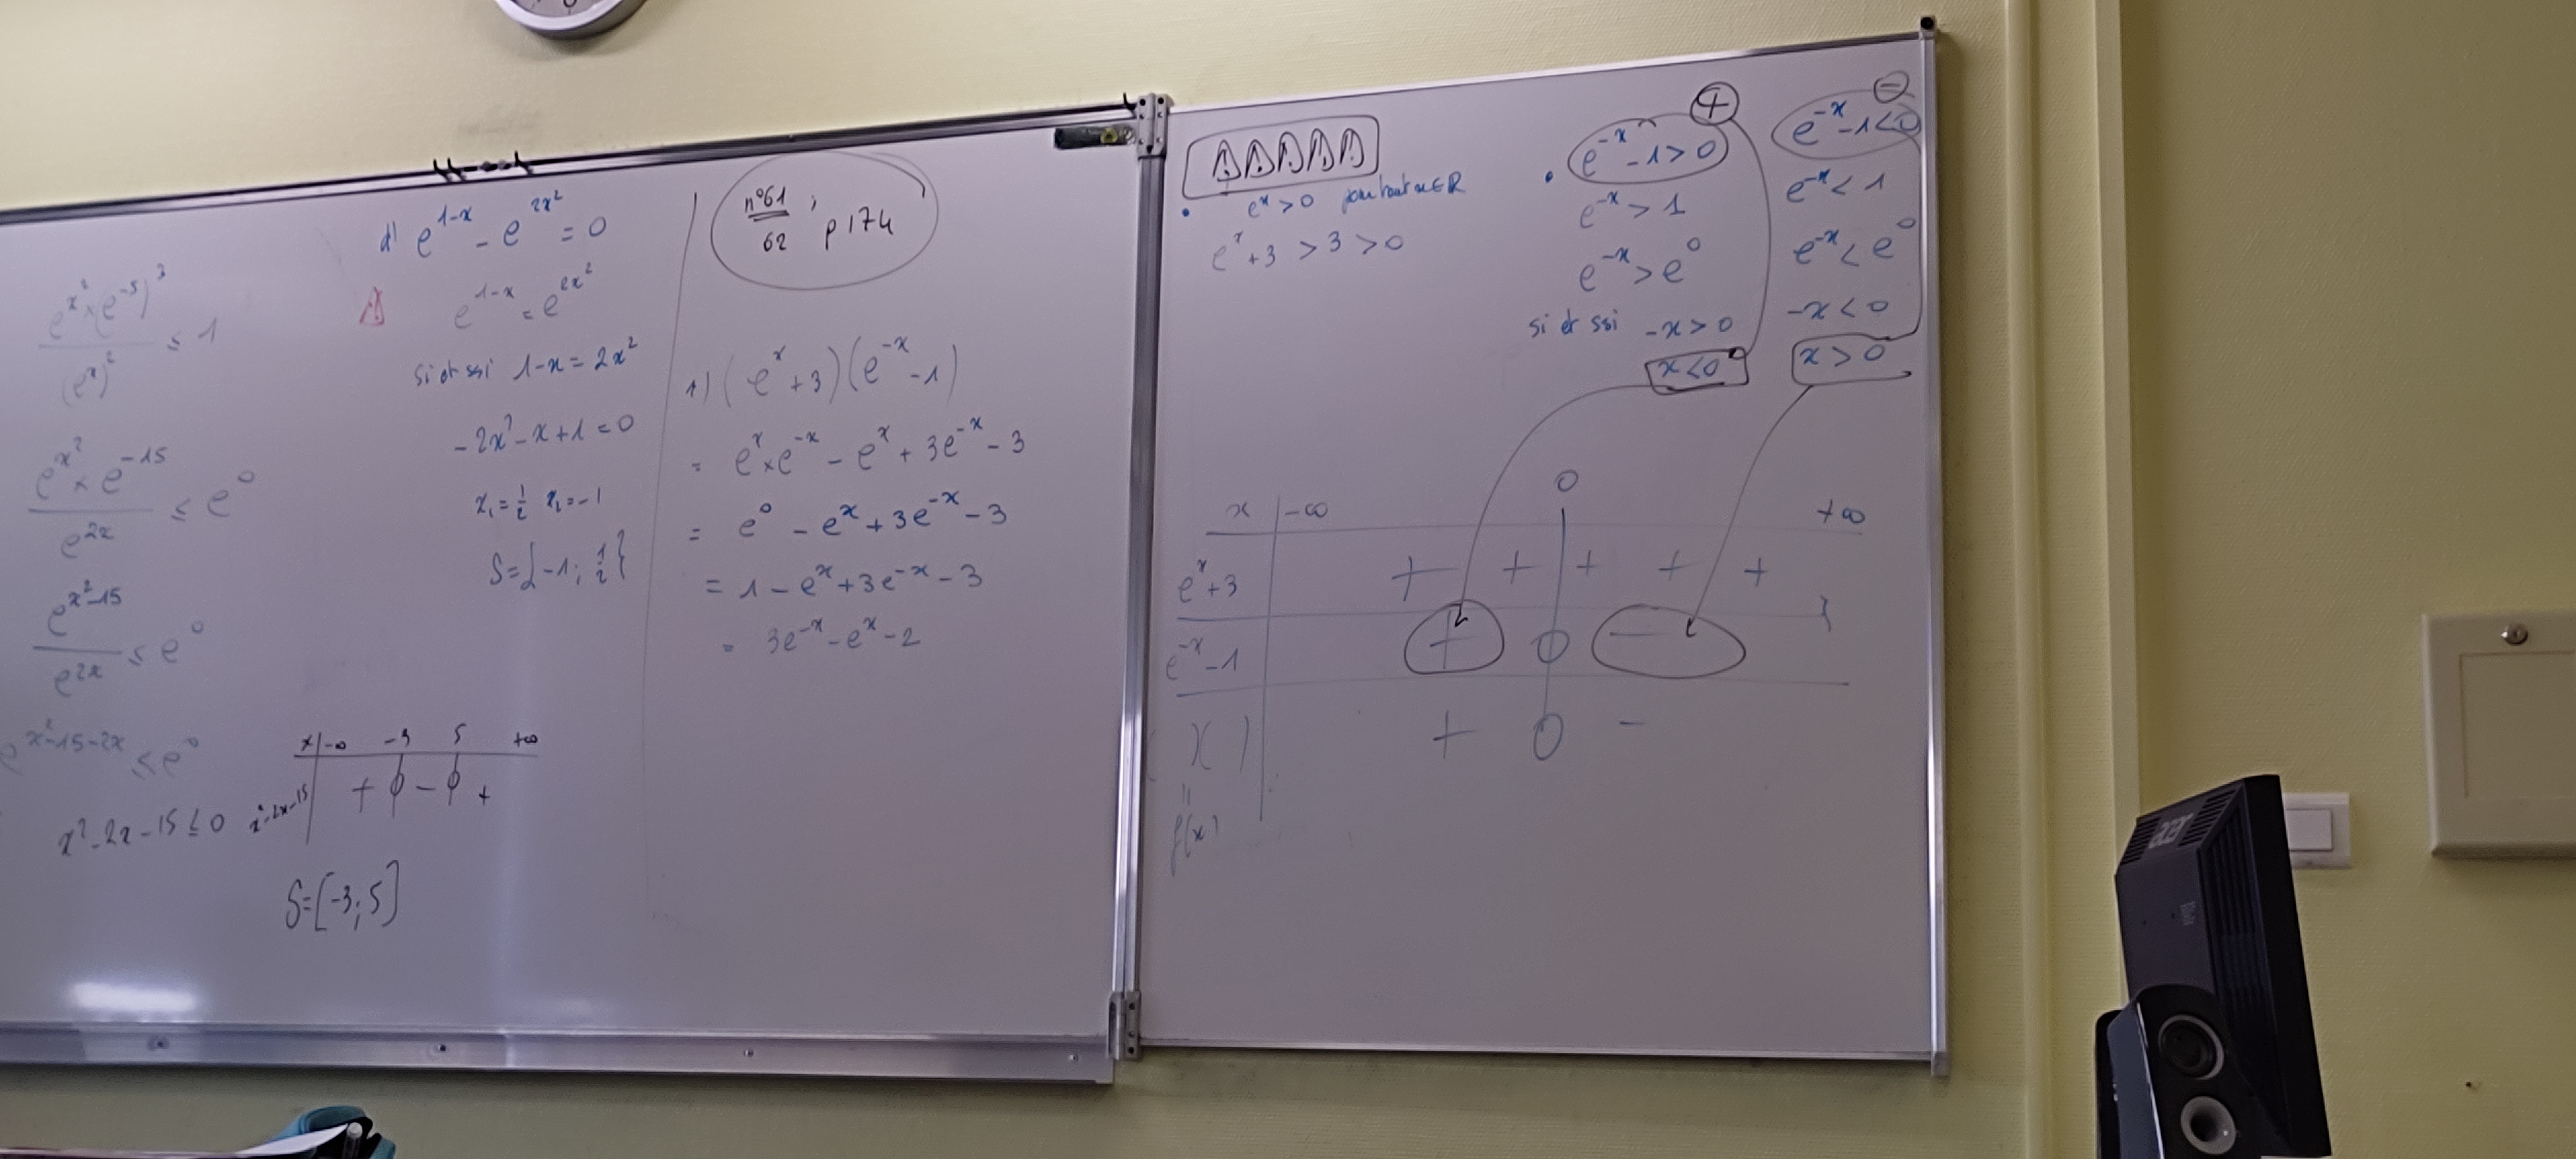 e^{x²} × (e^{-5})³ / (e^x)² ≤ 1
e^{x²} × e^{-15} / e^{2x} ≤ e^0
e^{x²-15} / e^{2x} ≤ e^0
e^{x²-15-2x} ≤ e^0
x² - 2x - 15 ≤ 0
x | -∞ -3 5 +∞
x²-2x-15 | + 0 - 0 +
S = [-3; 5]
d) e^{1-x} - e^{2x²} = 0
e^{1-x} = e^{2x²}
si et ssi 1-x = 2x²
-2x² - x + 1 = 0
x₁ = 1/2 x₂ = -1
S = {-1; 1/2}
n°61 ;
62 p 174
1) (e^x + 3)(e^{-x} - 1)
= e^x × e^{-x} - e^x + 3e^{-x} - 3
= e^0 - e^x + 3e^{-x} - 3
= 1 - e^x + 3e^{-x} - 3
= 3e^{-x} - e^x - 2
• e^x > 0 pour tout x ∈ R
e^x + 3 > 3 > 0
+
• e^{-x} - 1 > 0
e^{-x} > 1
e^{-x} > e^0
si et ssi -x > 0
x < 0
-
e^{-x} - 1 < 0
e^{-x} < 1
e^{-x} < e^0
-x < 0
x > 0
x | -∞ 0 +∞
e^x + 3 | + + + + +
e^{-x} - 1 | + 0 -
( )( ) | + 0 -
"
f(x)
acer